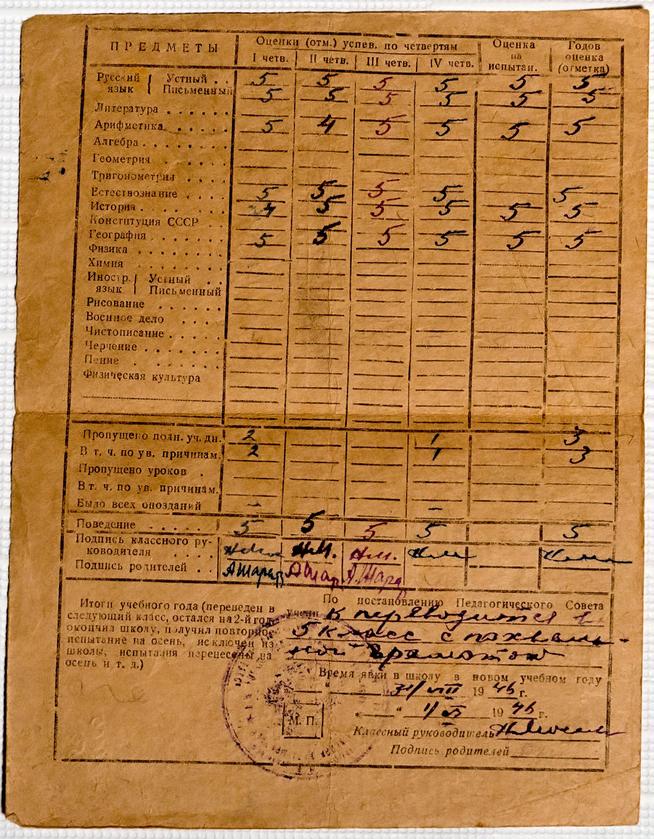 ПРЕДМЕТЫ Оценки (отм.) успев. по четвертям Оценка на испытан. Годов. оценка (отметка)
I четв. II четв. III четв. IV четв.
Русский язык { Устный . . 5 5 5 5 5 5
Письменный 5 5 5 5 5 5
Литература
Арифметика 5 4 5 5 5 5
Алгебра
Геометрия
Тригонометрия
Естествознание 5 5 5 5 5
История 4 5 5 5 5 5
Конституция СССР
География 5 5 5 5 5 5
Физика
Химия
Иностр. язык { Устный
Письменный
Рисование
Военное дело
Чистописание
Черчение
Пение
Физическая культура
Пропущено полн. уч. дн. 2 1 3
В т. ч. по ув. причинам. 2 1 3
Пропущено уроков
В т. ч. по ув. причинам.
Было всех опозданий – –
Поведение 5 5 5 5 5
Подпись классного руководителя Н.М. Н.М.
Подпись родителей АШарад
Итоги учебного года (переведен в
следующий класс, остался на 2-й год,
окончил школу, получил повторное
испытание на осень, исключен из
школы, испытания перенесены на
осень и т. д.)
По постановлению Педагогического Совета
учени к переводится в
5 класс с похваль-
ной грамотой
Время явки в школу в новом учебном году
31/VIII 1946 г.
" 1/IX 1946 г.
М. П.
Классный руководитель
Подпись родителей